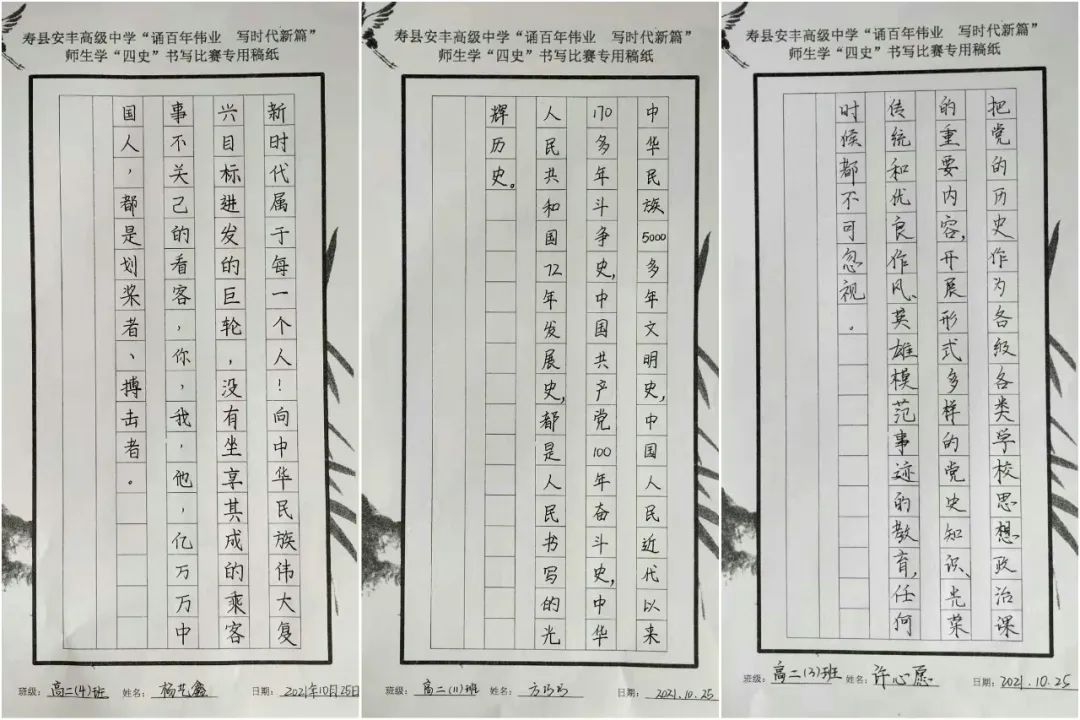 寿县安丰高级中学“诵百年伟业　写时代新篇”
师生学“四史”书写比赛专用稿纸
新时代属于每一个人！向中华民族伟大复
兴目标进发的巨轮，没有坐享其成的乘客
事不关己的看客，你，我，他，亿万万中
国人，都是划桨者、搏击者。
班级：高二(4)班 姓名：杨艺鑫 日期：2021年10月25日
寿县安丰高级中学“诵百年伟业　写时代新篇”
师生学“四史”书写比赛专用稿纸
中华民族5000多年文明史，中国人民近代以来
170多年斗争史，中国共产党100年奋斗史，中华
人民共和国72年发展史，都是人民书写的光
辉历史。
班级：高二(11)班 姓名：方巧巧 日期：2021.10.25
寿县安丰高级中学“诵百年伟业　写时代新篇”
师生学“四史”书写比赛专用稿纸
把党的历史作为各级各类学校思想政治课
的重要内容，开展形式多样的党史知识、光荣
传统和优良作风、英雄模范事迹的教育，任何
时候都不可忽视。
班级：高二(3)班 姓名：许心愿 日期：2021.10.25